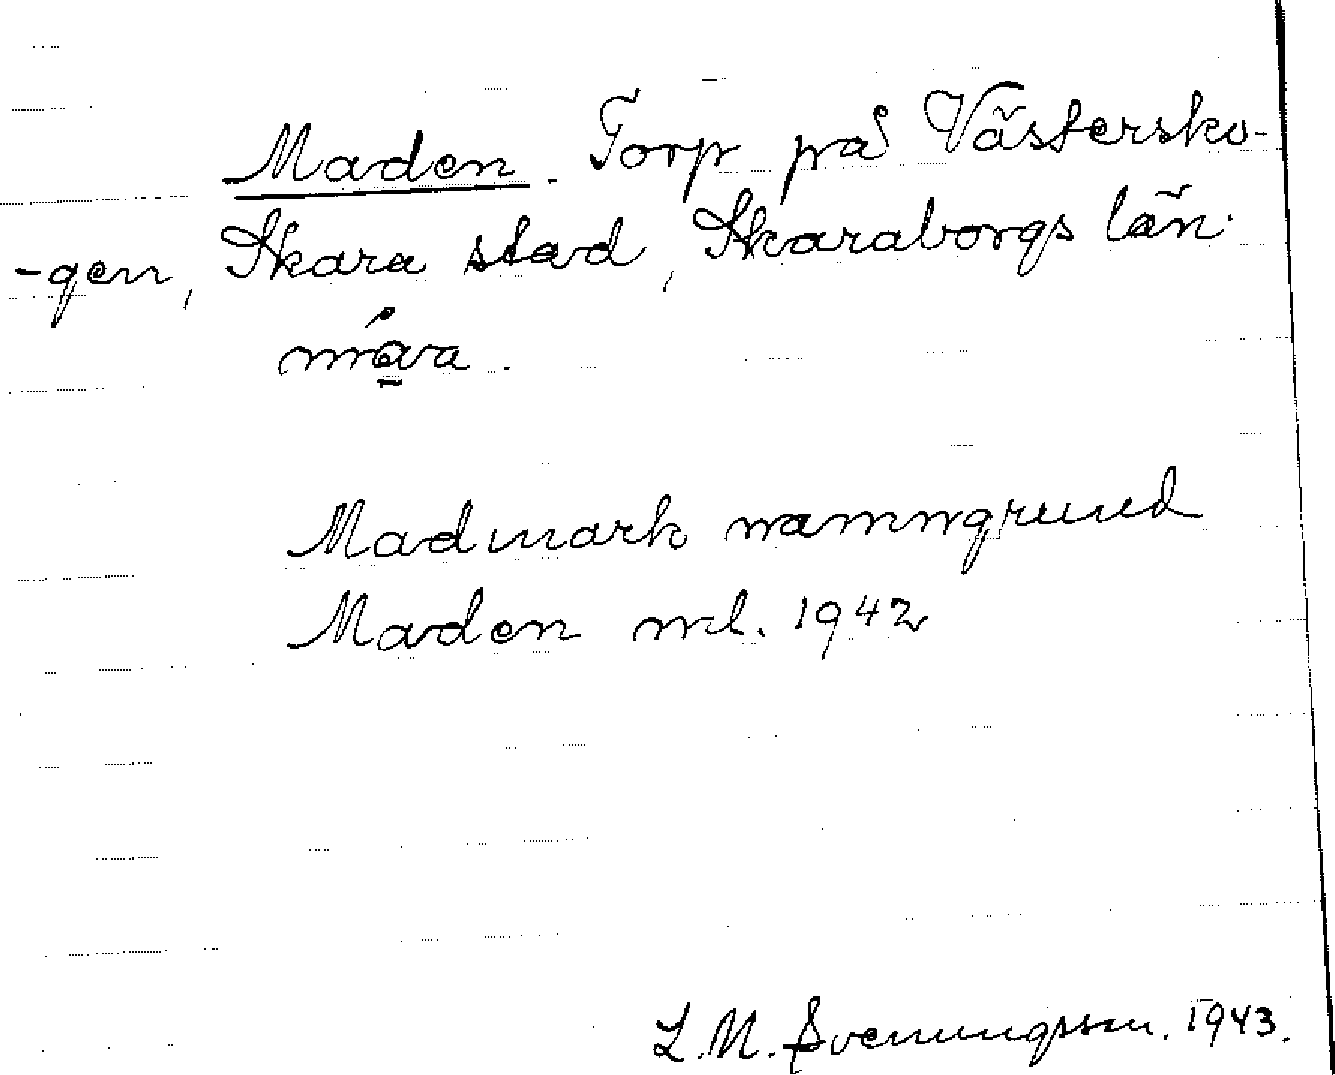 Maden. Torp på Västersko-
-gen, Skara stad, Skaraborgs län.
Madmark namngrund
Maden ml. 1942
L. M. Svenungsson. 1943.